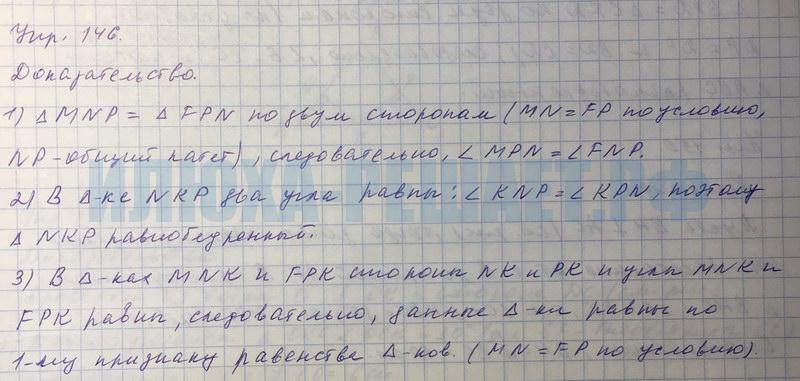 Упр. 146.
Доказательство.
1) Δ MNP = Δ FPN по двум сторонам (MN = FP по условию,
NP - общий катет), следовательно, ∠ MPN = ∠ FNP.
2) В Δ-ке NKP два угла равны: ∠ KNP = ∠ KPN, поэтому
Δ NKP равнобедренный.
3) В Δ-ках MNK и FPK стороны NK и PK и углы MNK и
FPK равны, следовательно, данные Δ-ки равны по
1-му признаку равенства Δ-ков. (MN = FP по условию).
ИЛЮХА-РЕШАЕТ.РФ